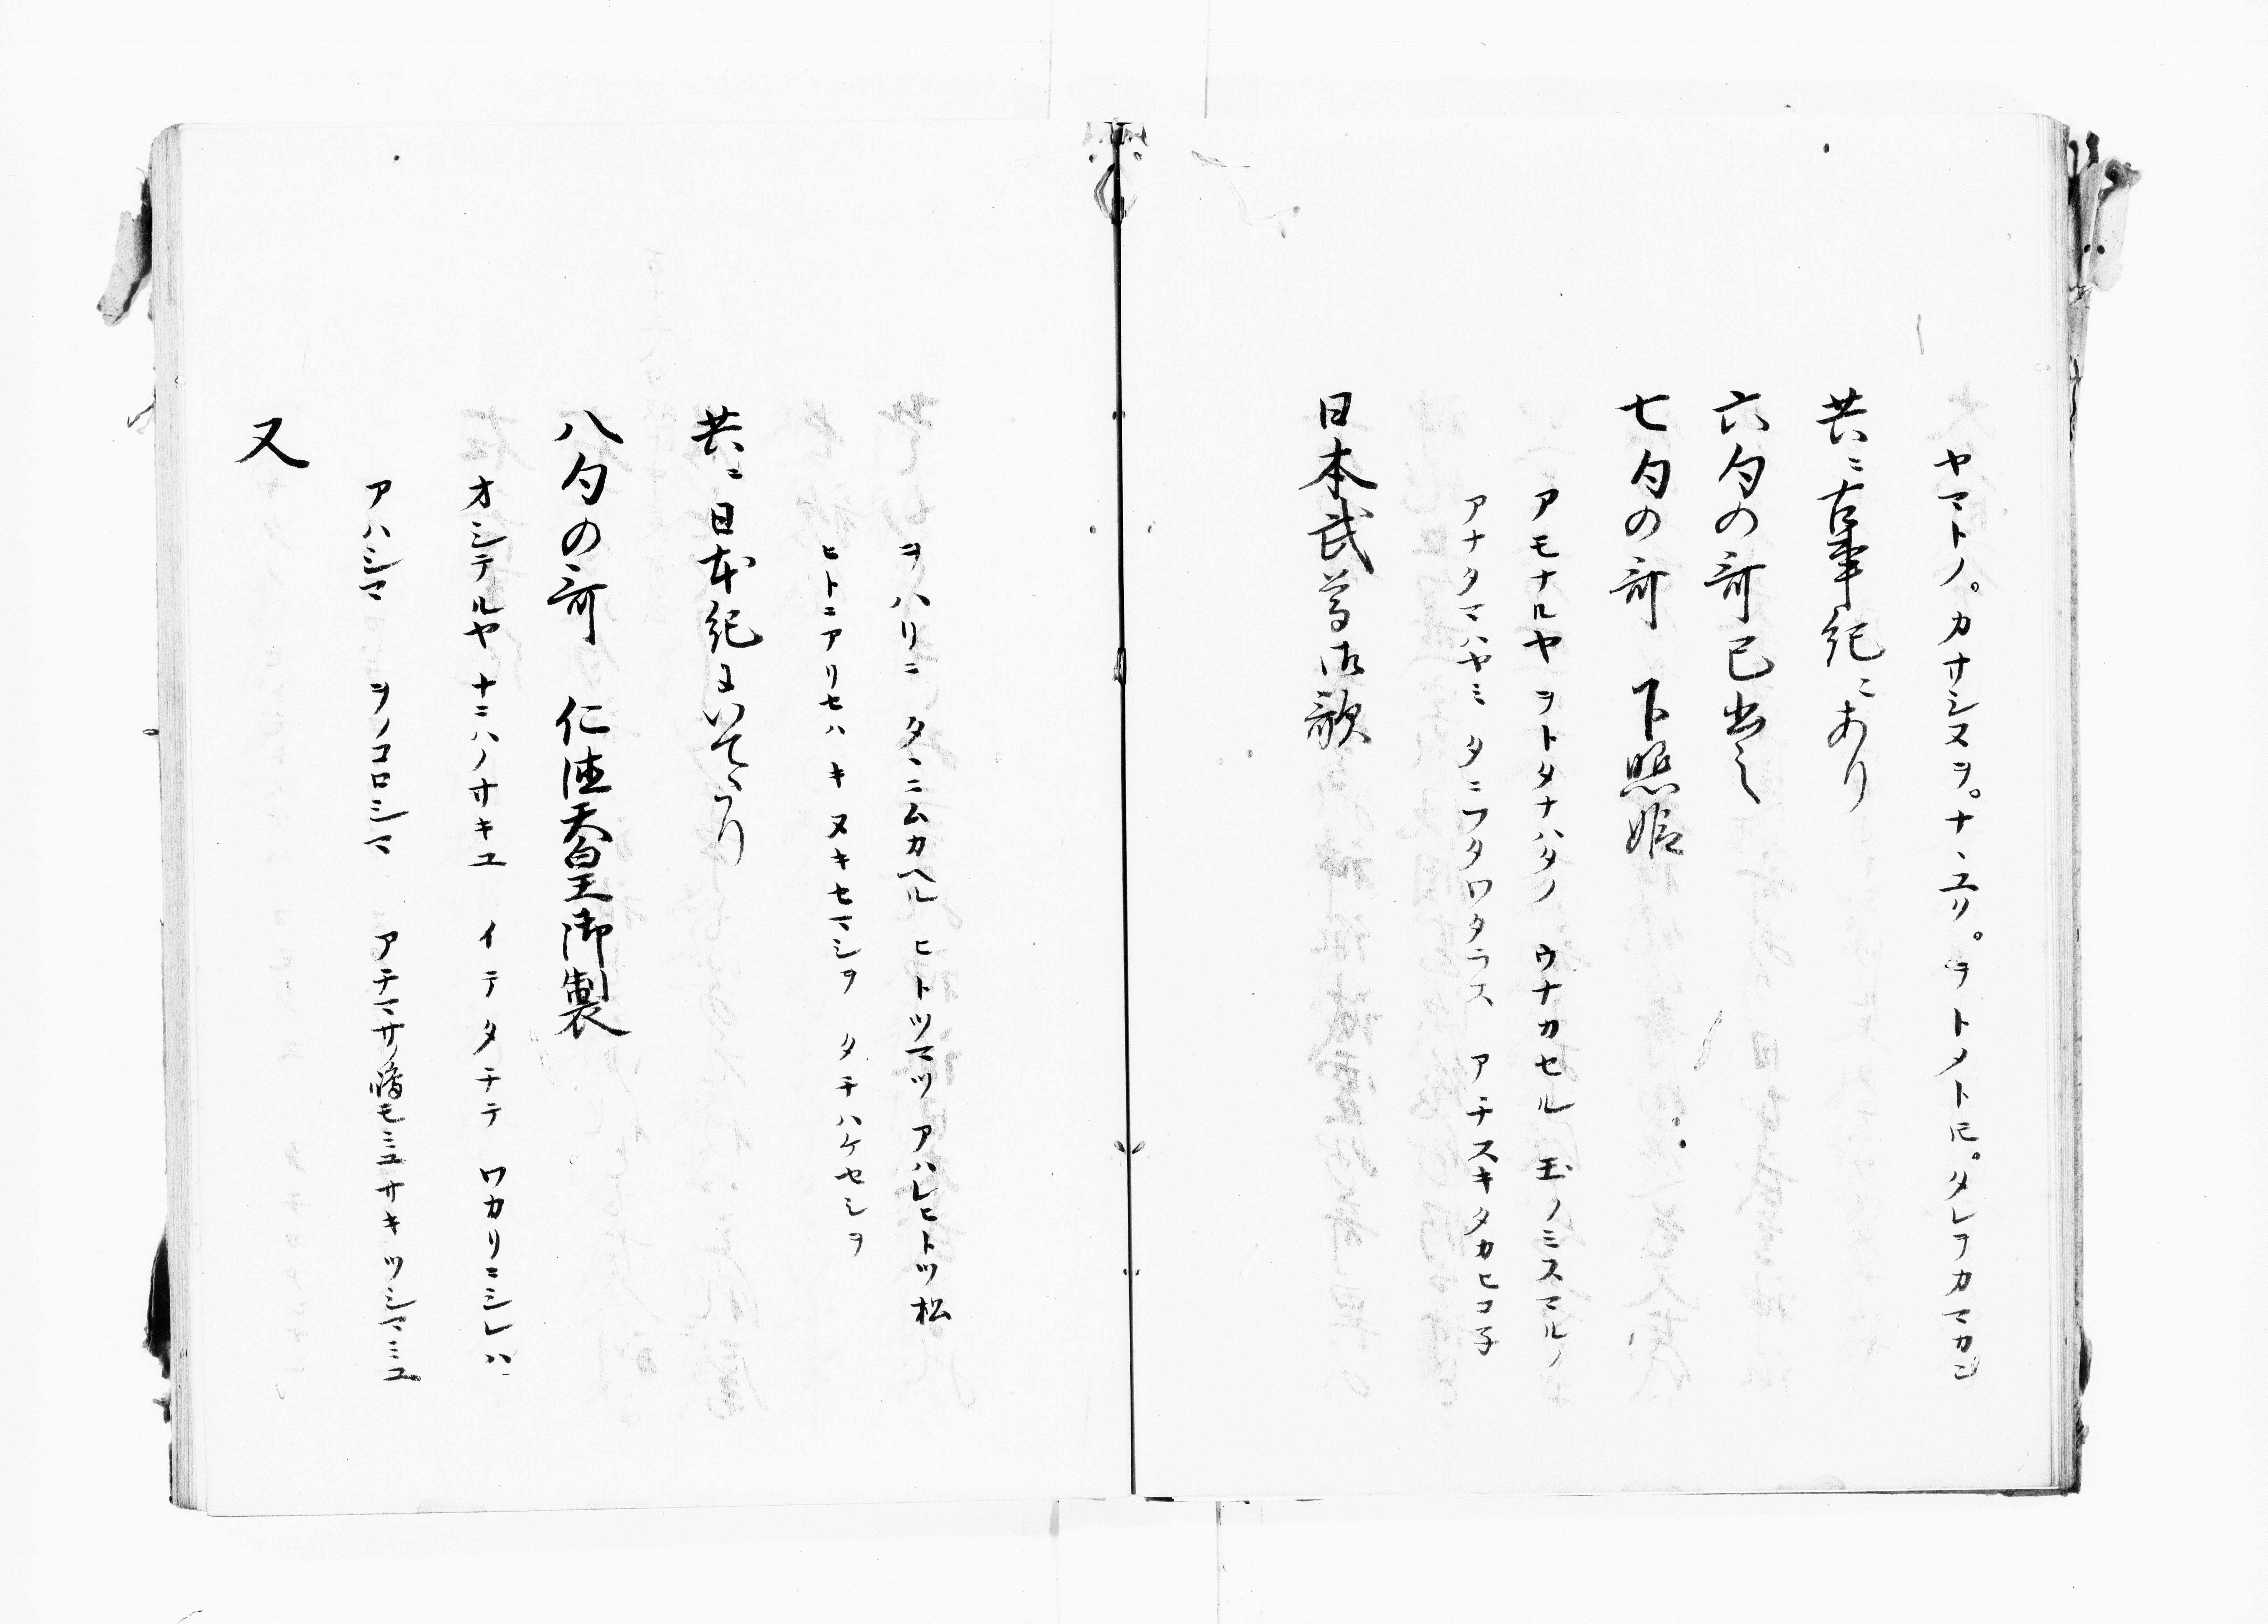 ヤマトノ。カサシヌヲ。ナヽユリ。ヲトメトモ。タレヲカマカン
共ニ古事紀ニあり
六句の哥已出之
七句の哥 下照姫
アモナルヤ ヲトタナハタノ ウナカセル 玉ノミスマルノ
アナタマハヤミ タニフタワタラス アチスキタカヒコ子
日本武尊御歌
ヲハリニ タヽニムカヘル ヒトツマツ アハレヒトツ松
ヒトニアリセハ キヌキセマシヲ タチハケセシヲ
共ニ日本紀にいてたり
八句の哥 仁徳天皇御製
オシテルヤ ナニハノサキユ イテタチテ ワカクニミレハ
アハシマ ヲノコロシマ アチマサノ嶋モミユ サキツシマミユ
又